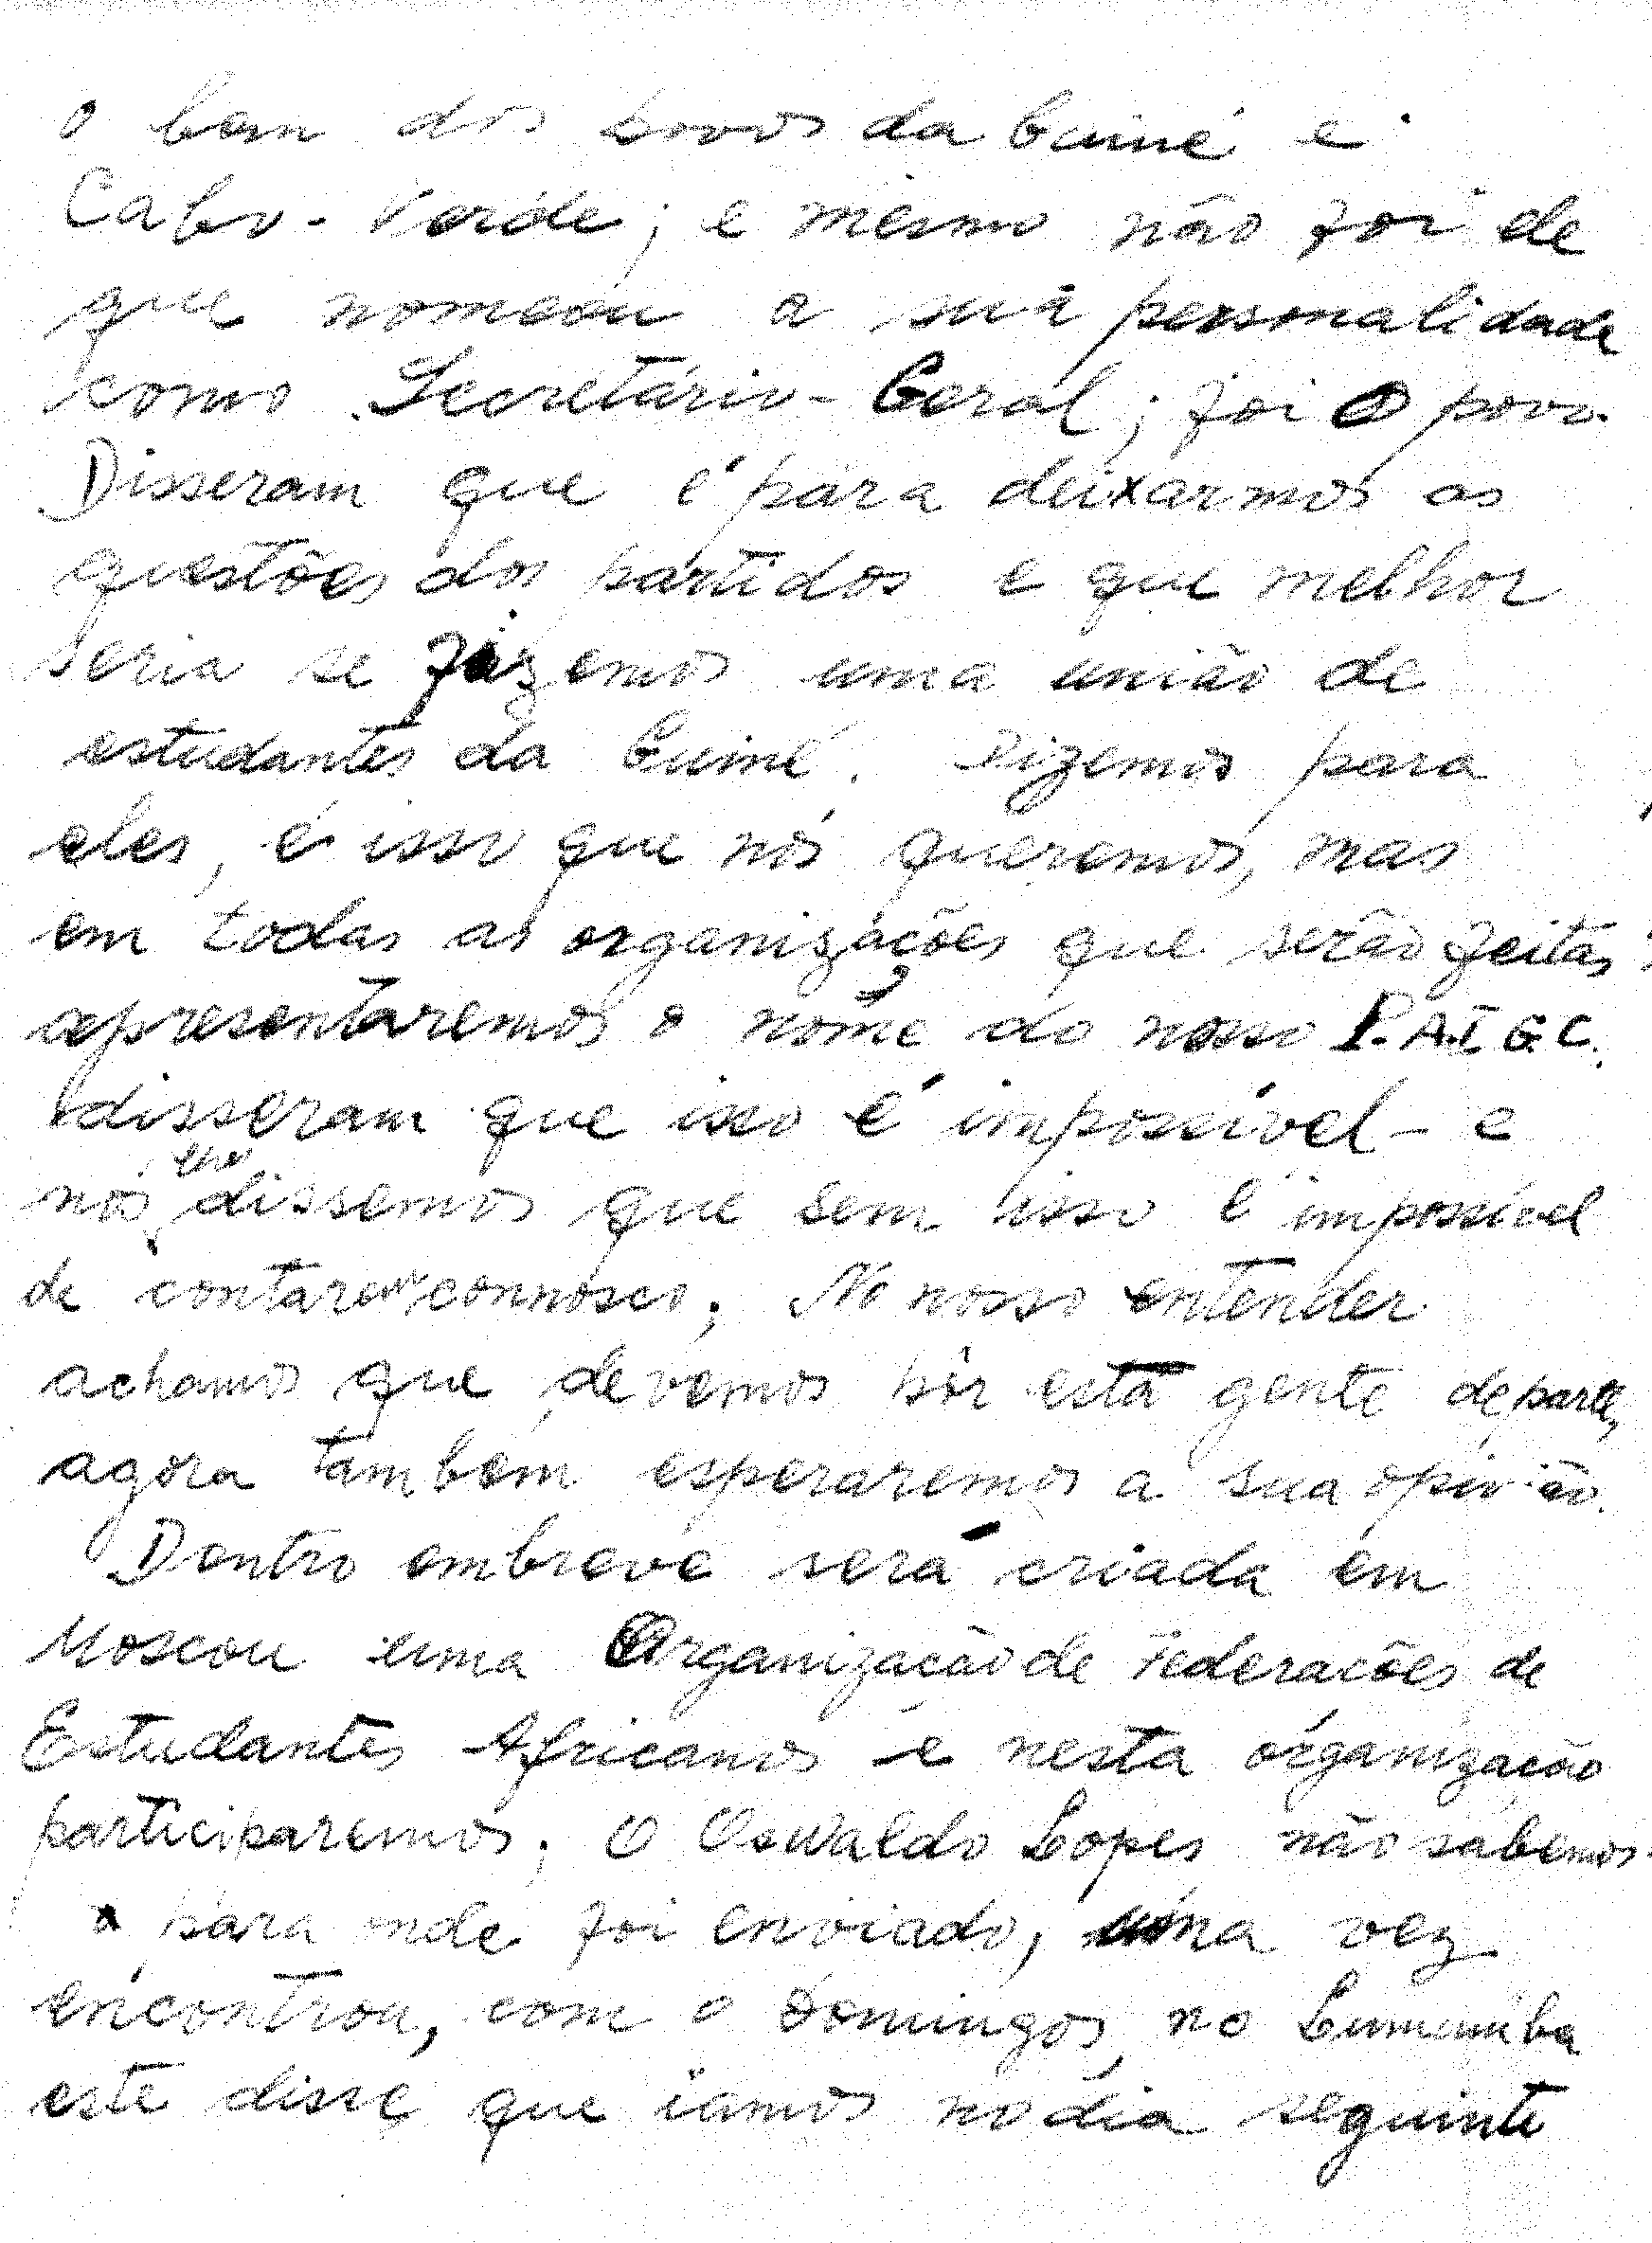 o bem dos povos da Guiné e
Cabo-Verde; e mesmo não foi ele
que nomeou a sua personalidade
como Secretário-Geral; foi o povo.
Disseram que é para deixarmos as
questões dos partidos e que melhor
seria se fizemos uma união de
estudantes da Guiné. Dizemos para
eles, é isso que nós queremos, mas
em todas as organizações que serão feitas
apresentaremos o nome do nosso P.A.I.G.C.
disseram que isso é impossível - e
nós dissemos que sem isso é impossível
de contarem connosco; No nosso entender
achamos que devemos pôr esta gente departe,
agora também esperaremos a sua opinião.
Dentro embreve será criada em
Moscou uma Organização de Federações de
Estudantes Africanos e nesta organização
participaremos; O Oswaldo Lopes não sabemos
para onde foi enviado, uma vez
encontrou, com o Domingos no Lumumba
este disse que iamos no dia seguinte